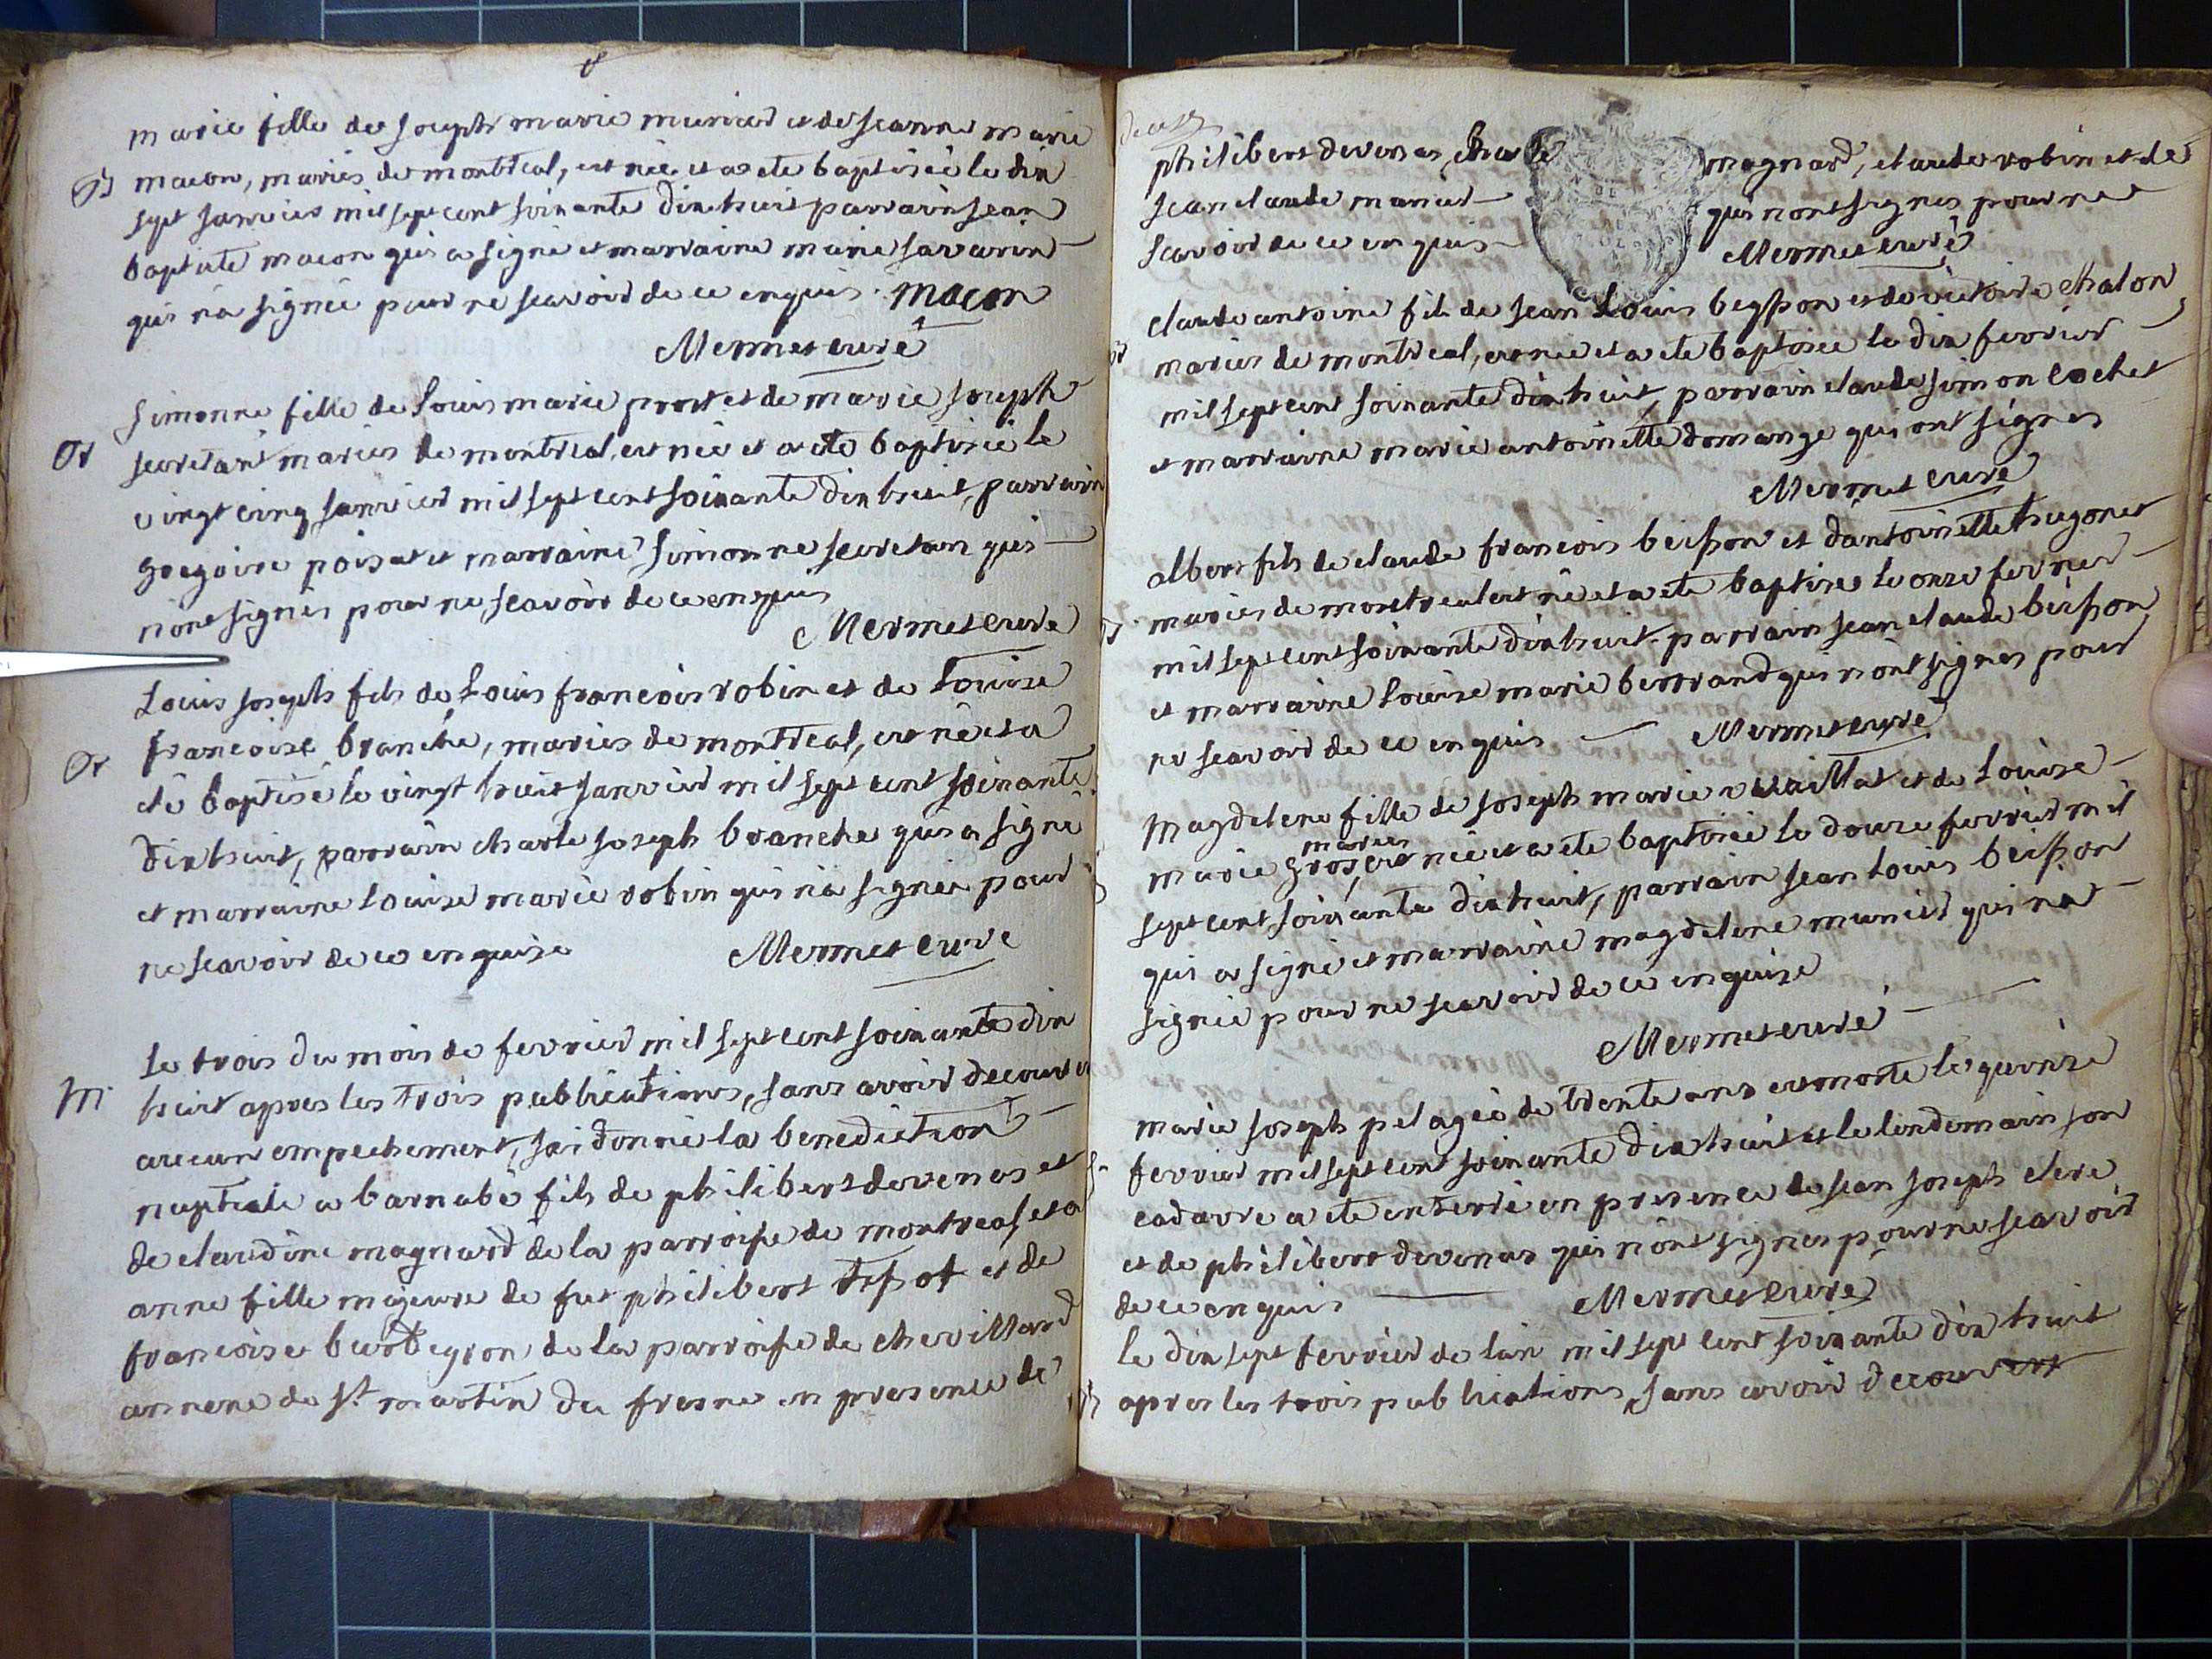 marie fille de joseph marie munier et de jeanne marie
macon, mariés de montreal, est née et a ete baptisée le dix
sept janvier mil sept cent soixante dixhuit parrain jean
baptiste macon qui a signé et marraine marie savarin
qui n'a signée pour ne scavoir de ce enquis. macon
Mermet curé
Simonne fille de Louis marie prost et de marie joseph
secretant mariés de montreal, est née et a ete baptisée le
vingt cinq janvier mil sept cent soixante dix huit, parrain
gregoire poisat et marraine Simonne secretan qui
n'ont signés pour ne scavoir de ce enquis
Mermet curé
Louis joseph fils de Louis francois robin et de Louise
francoise branche, mariés de montreal, est né et a
été baptisé le vingt huit janvier mil sept cent soixante
dixhuit, parrain charle joseph branche qui a signé
et marraine Louise marie robin qui n'a signée pour
ne scavoir de ce enquise Mermet curé
Le trois du mois de fevrier mil sept cent soixante dix
m huit apres les trois publications, sans avoir decouvert
aucun empechement, j'ai donné la benediction
nuptiale a barnabé fils de philibert devenas et
de claudine magnard de la parroisse de montreal et a
anne fille majeure de fut philibert et de
francoise de la parroisse de chevillard
annexe de st martin du fresne en presence de
philibert devenas, charle magnard, claude robin et de
jean claude manier qui n'ont signés pour ne
scavoir de ce enquis Mermet curé
claude antoine fils de jean Louis beysson et de victoire chalon
mariés de montreal, est née et a ete baptisée le dix fevrier
mil sept cent soixante dixhuit, parrain claude simon cochet
et marraine marie antoinette domange qui ont signés
Mermet curé
albert fils de claude francois beisson et d'antoinette hugonet
mariés de montreal est né et a ete baptisés le onze fevrier
mil sept cent soixante dixhuit. parrain jean claude beisson
et marraine Louise marie berrand qui n'ont signés pour
ne scavoir de ce enquis Mermet curé
Magdelene fille de joseph marie vuaillat et de Louise
mariés
marie gros, est née et a ete baptisée le douze fevrier mil
sept cent soixante dixhuit, parrain jean Louis beisson
qui a signé et marraine magdelene munier qui n'a
signée pour ne scavoir de ce enquise
Mermet curé
marie joseph pelagie de trente ans est morte le quinze
fevrier mil sept cent soixante dixhuit et le lendemain son
cadavre a ete enterré en presence de jean joseph clerc
et de philibert devenas qui n'ont signés pour ne scavoir
de ce enquis Mermet curé
le dix sept fevrier de l'an mil sept cent soixante dix huit
apres les trois publications, sans avoir decouvert